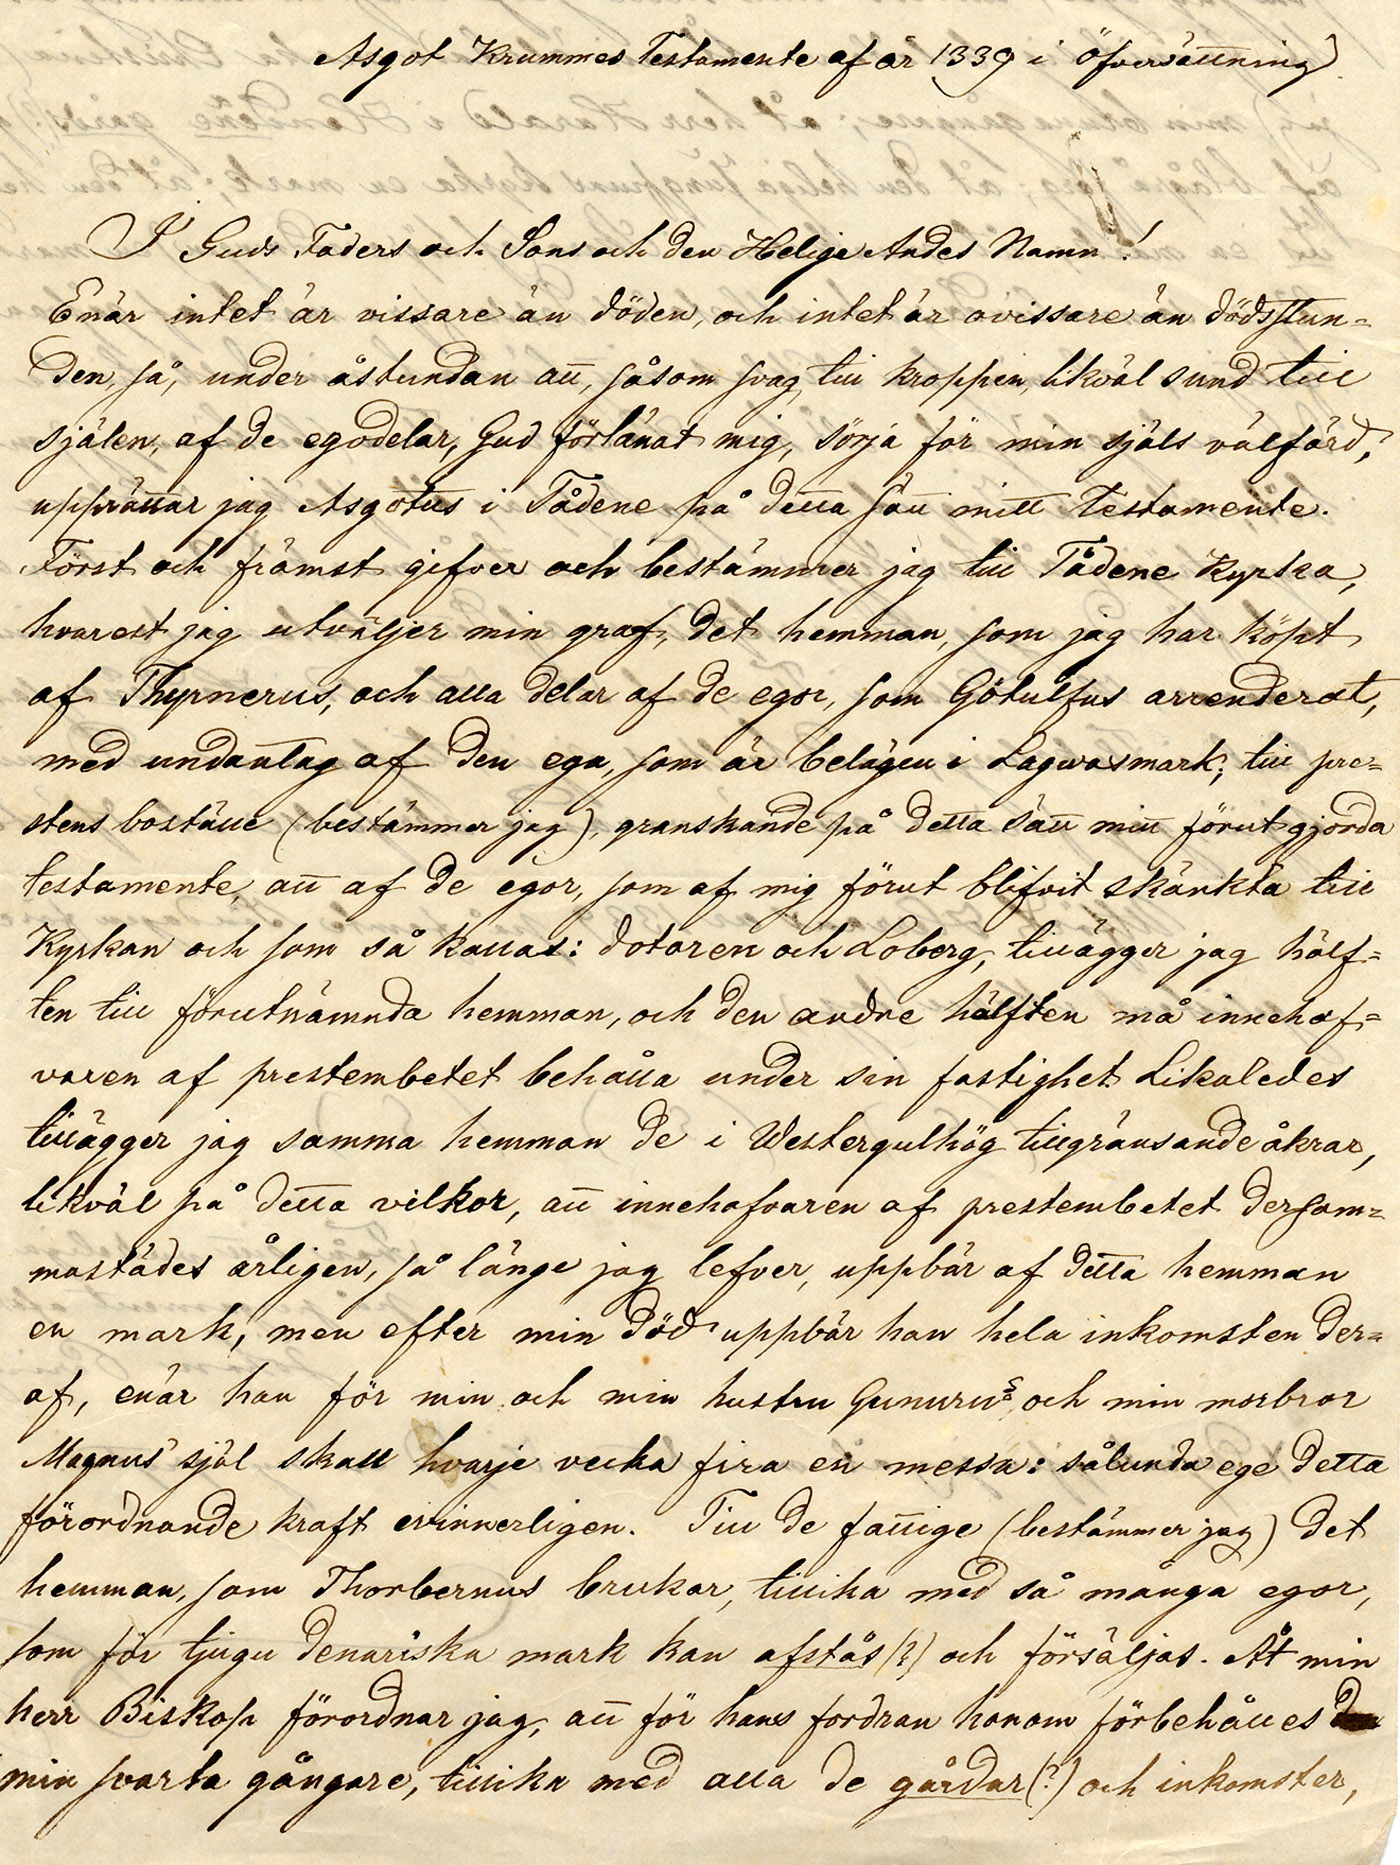 Asgot Krummes Testamente af år 1339 i öfversättning
I Guds Faders och Sons och den Helige Andes Namn!
Enär intet är vissare än döden, och intet är ovissare än dödsstun=
den, så, under åstundan att, såsom svag till kroppen, likväl sund till
själen, af de egodelar, Gud förlänat mig, sörja för min själs välfärd,
upprättar jag Asgotus i Tådene på detta sätt mitt testamente.
Först och främst gifver och bestämmer jag till Tådene Kyrka,
hvarest jag utväljer min graf, det hemman, som jag har köpt
af Thyrnerus, och alla delar af de egor, som Götulfus arrenderat,
med undantag af den ega, som är belägen i Lagwasmark; till pre=
stens boställe (bestämmer jag), granskande på detta sätt mitt förut gjorda
testamente, att af de egor, som af mig förut blifvit skänkta till
Kyrkan och som så kallas: dotaren och Loberg, tillägger jag hälf=
ten till förutnämnda hemman, och den andre hälften må innehaf=
varen af prestembetet behålla under sin fastighet. Likaledes
tillägger jag samma hemman de i Westergulhög tillgränsande åkrar,
likväl på detta vilkor, att innehafvaren af prestembetet dersam=
mastädes årligen, så länge jag lefver, uppbär af detta hemman
en mark, men efter min död uppbär han hela inkomsten der=
af, enär han för min och min hustru Gunurus och min morbror
Magnus' själ skall hvarje vecka fira en messa: sålunda ege detta
förordnande kraft evinnerligen. Till de fattige (bestämmer jag) det
hemman, som Thorbernus brukar, tillika med så många egor,
som för tjugu denariska mark kan afstås (?) och försäljas. Åt min
herr Biskop förordnar jag, att för hans fordran honom förbehålles
min svarta gångare, tillika med alla de gårdar (?) och inkomster,